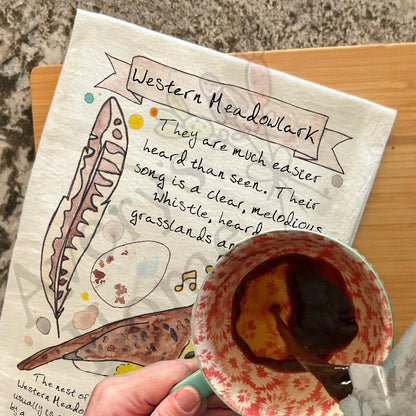 Western Meadowlark
They are much easier
heard than seen. Their
song is a clear, melodious
whistle, heard
grasslands an
The nest of
Western Meadow
usually is